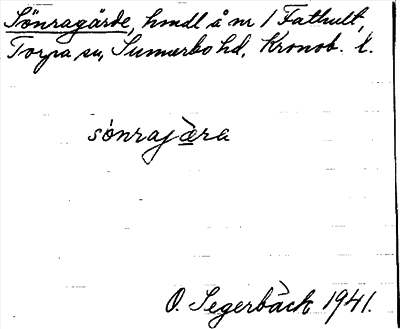 Sönragärde, hmdl å nr 1 Fathult,
Torpa sn, Sunnerbo hd, Kronob. l.
sònrajæ̀ra
O. Segerbäck 1941.